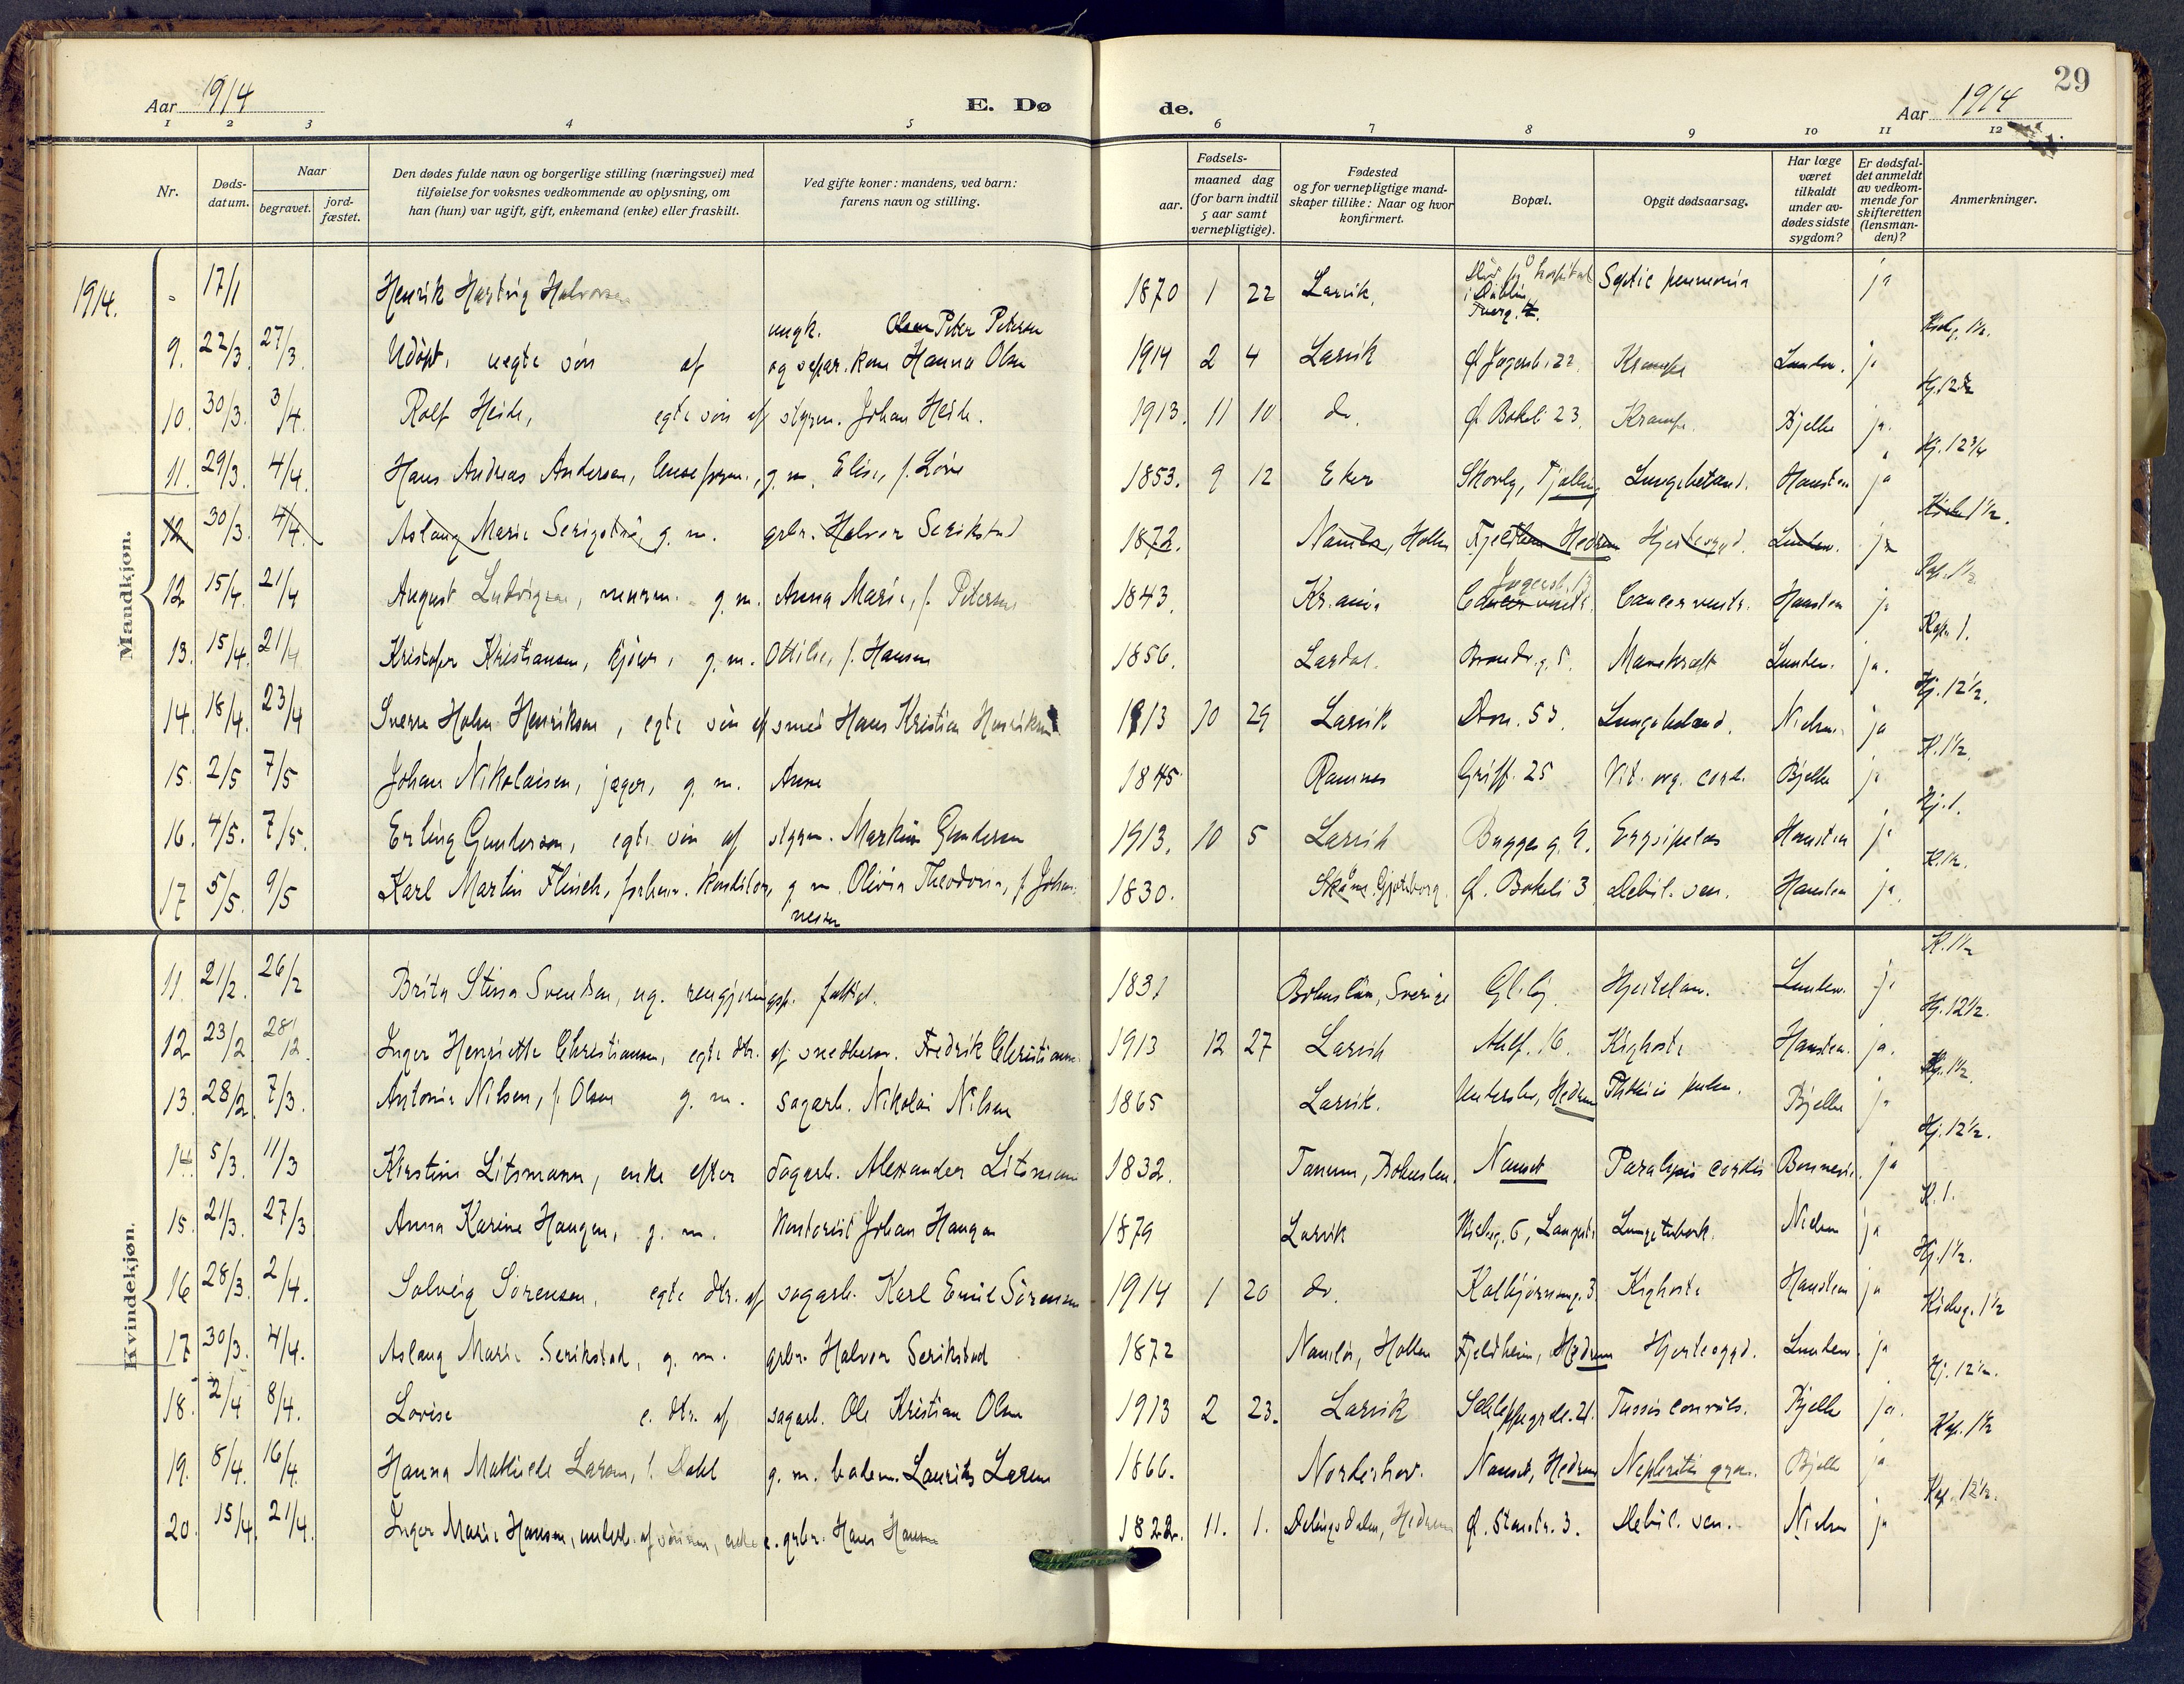 Aar 1914 E. Dø de. Aar 1914 29
1 2 3 4 5 6 7 8 9 10 11 12
Nr. Døds-datum. Naar begravet. jord-fæstet. Den dødes fulde navn og borgerlige stilling (næringsvei) med tilføielse for voksnes vedkommende av oplysning, om han (hun) var ugift, gift, enkemand (enke) eller fraskilt. Ved gifte koner: mandens, ved barn: farens navn og stilling. Fødsels- aar. maaned dag (for barn indtil 5 aar samt vernepligtige). Fødested og for vernepligtige mand-skaper tillike: Naar og hvor konfirmert. Bopæl. Opgit dødsaarsag. Har læge været tilkaldt under av-dødes sidste sygdom? Er dødsfal-det anmeldt av vedkom-mende for skifteretten (lensman-den)? Anmerkninger.
Mandkjøn.
1914. " 17/1 Henrik Hartvig Halvorsen 1870 1 22 Larvik, i Dublin Septic pneumonia ja
9. 22/3. 27/3. Udøpt, uegte søn af ungk. Peter Petersen og separ. kone Hanna Olsen 1914 2 4 Larvik Ø. Jegersb. 22 Krampe Lunden. ja
10. 30/3. 3/4. Rolf Heide, egte søn af styrm. Johan Heide. 1913. 11 10 do. Ø. Bøkeli 23. Krampe. Bjelke ja. Hj. 12½
11. 29/3. 4/4. Hans Andreas Andersen, g. m. Elise, f. Love 1853. 9 12 Eker Skovly, Tjølling Lungebetænd. Hansten ja Hj. 12¾
12 30/3. 4/4. Aslaug Marie Serigstad, g. m. grbr. Halvor Serikstad 1872. Namløs, Hollen Fjeldheim Hedrum Hjertesygd. Lunden. ja 1½.
12 15/4. 21/4 August Ludvigsen, murm. g. m. Anna Marie, f. Petersen 1843. Kr.ania Jegersb. Cancer ventr. Hansten ja Kap. 1½
13. 15/4. 21/4 Kristofer Kristiansen, kjører, g. m. Ottilie, f. Hansen 1856. Lardal. Brandv. g. 5. Mavekræft Lunden. ja. Kap. 1.
14. 18/4. 23/4 Sverre Holm Henriksen, egte søn af smed Hans Kristian Henriksen 1913 10 29 Larvik Dron. 53. Lungebetænd. Nielsen. ja Hj. 12½.
15. 2/5 7/5 Johan Nikolaisen, jæger, g. m. Anne 1845 Ramnes Griff. 25 Vit. org. cord. Bjelke ja K. 1½.
16. 4/5. 7/5. Erling Gundersen, egte søn af styrm. Markus Gundersen 1913. 10 5 Larvik Bugges g. 9. Erysipelas Hansten ja Hj. 1.
17 5/5. 9/5 Karl Martin Flinch, forhenv. konditor, g. m. Olivia Theodora, f. Johannessen 1830. Gjøteborg. Ø. Bøkeli 3 Debil. sen. Hansten ja. K. 1½.
Kvindekjøn.
11. 21/2. 26/2 Brita Stina Svendsen, ug. rengjøringsk. fattigl. 1831 Bohuslän, Sverige Hjertelam. Lunden. ja K. 1½
12 23/2 28/2. Inger Henriette Christiansen, egte dtr. af snedkersv. Fredrik Christiansen 1913 12 27 Larvik Ahlf. 16. Kighoste Hansten. ja. Hj. 12½.
13. 28/2. 7/3. Antonie Nilsen, f. Olsen g. m. sagarb. Nikolai Nilsen 1865 Larvik. Hedrum Phthisis pulm. Bjelke ja 1½.
14 5/3. 11/3 Kirstine Litsmann, enke efter sagarb. Alexander Litsmann 1832. Tanum, Bohuslen. Nanset Paralysis cordis ja Hj. 12½.
15. 21/3. 27/3 Anna Karine Haugen, g. m. kontorist Johan Haugen 1879 Larvik Langest. Lungetuberk. Nielsen ja K. 1.
16 28/3. 2/4. Solveig Sørensen, egte dtr. af sagarb. Karl Emil Sørensen 1914 1 20 do. Kolbjørnsng. 3 Kighoste Hansten ja Hj. 1½.
17 30/3. 4/4. Aslaug Marie Serikstad, g. m. grbr. Halvor Serikstad 1872 Namløs, Hollen Fjeldheim, Hedrum Hjertesygd. Lunden ja 1½
18. 2/4 8/4. Lovise e. dtr. af sagarb. Ole Kristian Olsen 1913 2 23. Larvik Schleppegrell. 21. Tussis convuls. Bjelke ja. Hj. 12½.
19. 8/4. 16/4. Hanna Mathilde Larsen, f. Dahl g. m. Laurits Larsen 1866. Norderhov. Nanset, Hedrum Nephritis grav. Bjelke ja Kap. 1½
20. 15/4. 21/4. Inger Marie Hansen, underh. af sønnen, enke e. grbr. Hans Hansen 1822. 11. 1. Hedrum Ø. Stenstr. 3. Debil. sen. Nielsen ja Kap. 12½.